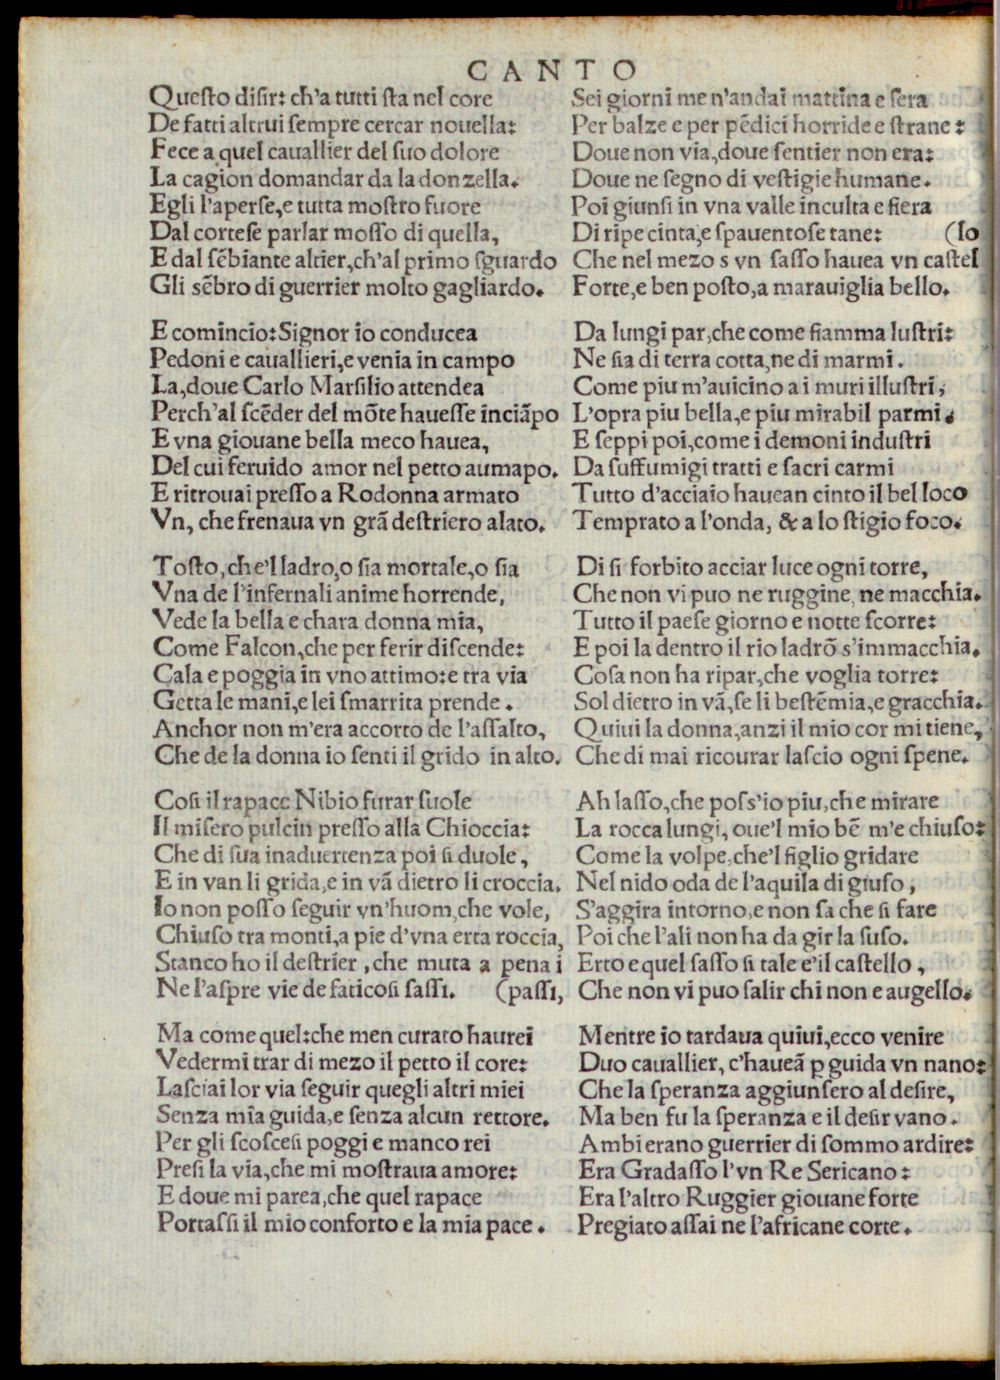 CANTO
Questo disir: ch'a tutti sta nel core
De fatti altrui sempre cercar nouella:
Fece a quel cauallier del suo dolore
La cagion domandar da la donzella.
Egli l'aperse,e tutta mostro fuore
Dal cortese parlar mosso di quella,
E dal sẽbiante altier,ch'al primo sguardo
Gli sẽbro di guerrier molto gagliardo.
E comincio:Signor io conducea
Pedoni e cauallieri,e venia in campo
La,doue Carlo Marsilio attendea
Perch'al scẽder del mõte hauesse inciãpo
E vna giouane bella meco hauea,
Del cui feruido amor nel petto aumapo.
E ritrouai presso a Rodonna armato
Vn, che frenaua vn grã destriero alato.
Tosto,che'l ladro,o sia mortale,o sia
Vna de l'infernali anime horrende,
Vede la bella e chara donna mia,
Come Falcon,che per ferir discende:
Cala e poggia in vno attimo:e tra via
Getta le mani,e lei smarrita prende.
Anchor non m'era accorto de l'assalto,
Che de la donna io senti il grido in alto.
Cosi il rapace Nibio furar suole
Il misero pulcin presso alla Chioccia:
Che di sua inaduertenza poi si duole,
E in van li grida,e in vã dietro li croccia.
Io non posso seguir vn'huom,che vole,
Chiuso tra monti,a pie d'vna erta roccia,
Stanco ho il destrier,che muta a pena i
Ne l'aspre vie de faticosi sassi. (passi,
Ma come quel:che men curato haurei
Vedermi trar di mezo il petto il core:
Lasciai lor via seguir quegli altri miei
Senza mia guida,e senza alcun rettore.
Per gli scoscesi poggi e manco rei
Presi la via,che mi mostraua amore:
E doue mi parea,che quel rapace
Portassi il mio conforto e la mia pace.
Sei giorni me n'andai mattina e sera
Per balze e per pẽdici horride e strane:
Doue non via,doue sentier non era:
Doue ne segno di vestigie humane.
Poi giunsi in vna valle inculta e fiera
Di ripe cinta,e spauentose tane: (lo
Che nel mezo s vn sasso hauea vn castel
Forte,e ben posto,a marauiglia bello.
Da lungi par,che come fiamma lustri:
Ne sia di terra cotta,ne di marmi.
Come piu m'auicino a i muri illustri,
L'opra piu bella,e piu mirabil parmi.
E seppi poi,come i demoni industri
Da suffumigi tratti e sacri carmi
Tutto d'acciaio hauean cinto il bel loco
Temprato a l'onda, & a lo stigio foco.
Di si forbito acciar luce ogni torre,
Che non vi puo ne ruggine, ne macchia.
Tutto il paese giorno e notte scorre:
E poi la dentro il rio ladrõ s'immacchia.
Cosa non ha ripar,che voglia torre:
Sol dietro in vã,se li bestẽmia,e gracchia.
Quiui la donna,anzi il mio cor mi tiene,
Che di mai ricourar lascio ogni spene.
Ah lasso,che poss'io piu,che mirare
La rocca lungi, oue'l mio bẽ m'e chiuso:
Come la volpe,che'l figlio gridare
Nel nido oda de l'aquila di giuso,
S'aggira intorno,e non sa che si fare
Poi che l'ali non ha da gir la suso.
Erto e quel sasso si tale e'il castello,
Che non vi puo salir chi non e augello.
Mentre io tardaua quiui,ecco venire
Duo cauallier, c'haueã ꝑ guida vn nano:
Che la speranza aggiunsero al desire,
Ma ben fu la speranza e il desir vano.
Ambi erano guerrier di sommo ardire:
Era Gradasso l'vn Re Sericano:
Era l'altro Ruggier giouane forte
Pregiato assai ne l'africane corte.